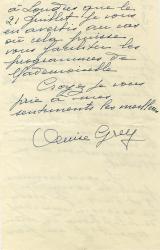 à Londres que le
21 Juillet. Je vous
en avertis au cas
où cela puisse
vous faciliter les
programmes de
Mademoiselle
Croyez je vous
prie à mes
sentiments les meilleurs
Denise Grey